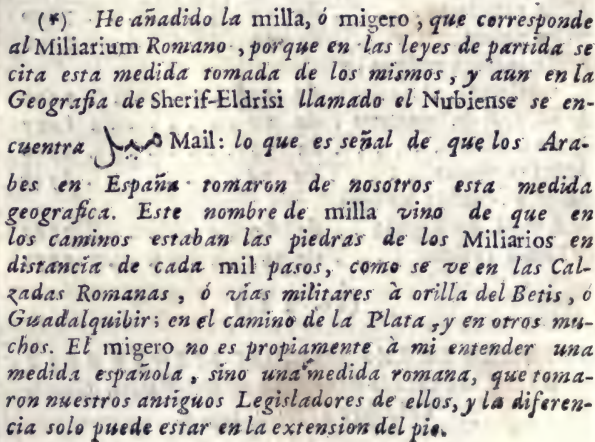 (*) He añadido la milla, ó migero, que corresponde
al Miliarium Romano, porque en las leyes de partida se
cita esta medida tomada de los mismos, y aun en la
Geografia de Sherif-Eldrisi llamado el Nubiense se en-
cuentra ميل Mail: lo que es señal de que los Ara-
bes en España tomaron de nosotros esta medida
geografica. Este nombre de milla vino de que en
los caminos estaban las piedras de los Miliarios en
distancia de cada mil pasos, como se ve en las Cal-
zadas Romanas, ó vias militares à orilla del Betis, ó
Guadalquibir; en el camino de la Plata, y en otros mu-
chos. El migero no es propiamente à mi entender una
medida española, sino una medida romana, que toma-
ron nuestros antiguos Legisladores de ellos, y la diferen-
cia solo puede estar en la extension del pie.